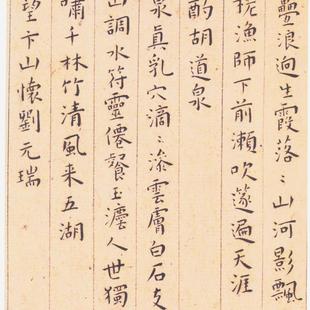 疊浪迴生霞落〻山河影飄
漁師下前瀨吹篴遍天涯
酌胡道泉
泉真乳穴滴〻雲膚白石支
山調水符靈僊餐玉人世獨
嘯千林竹清風来五湖
望卞山懷劉元瑞